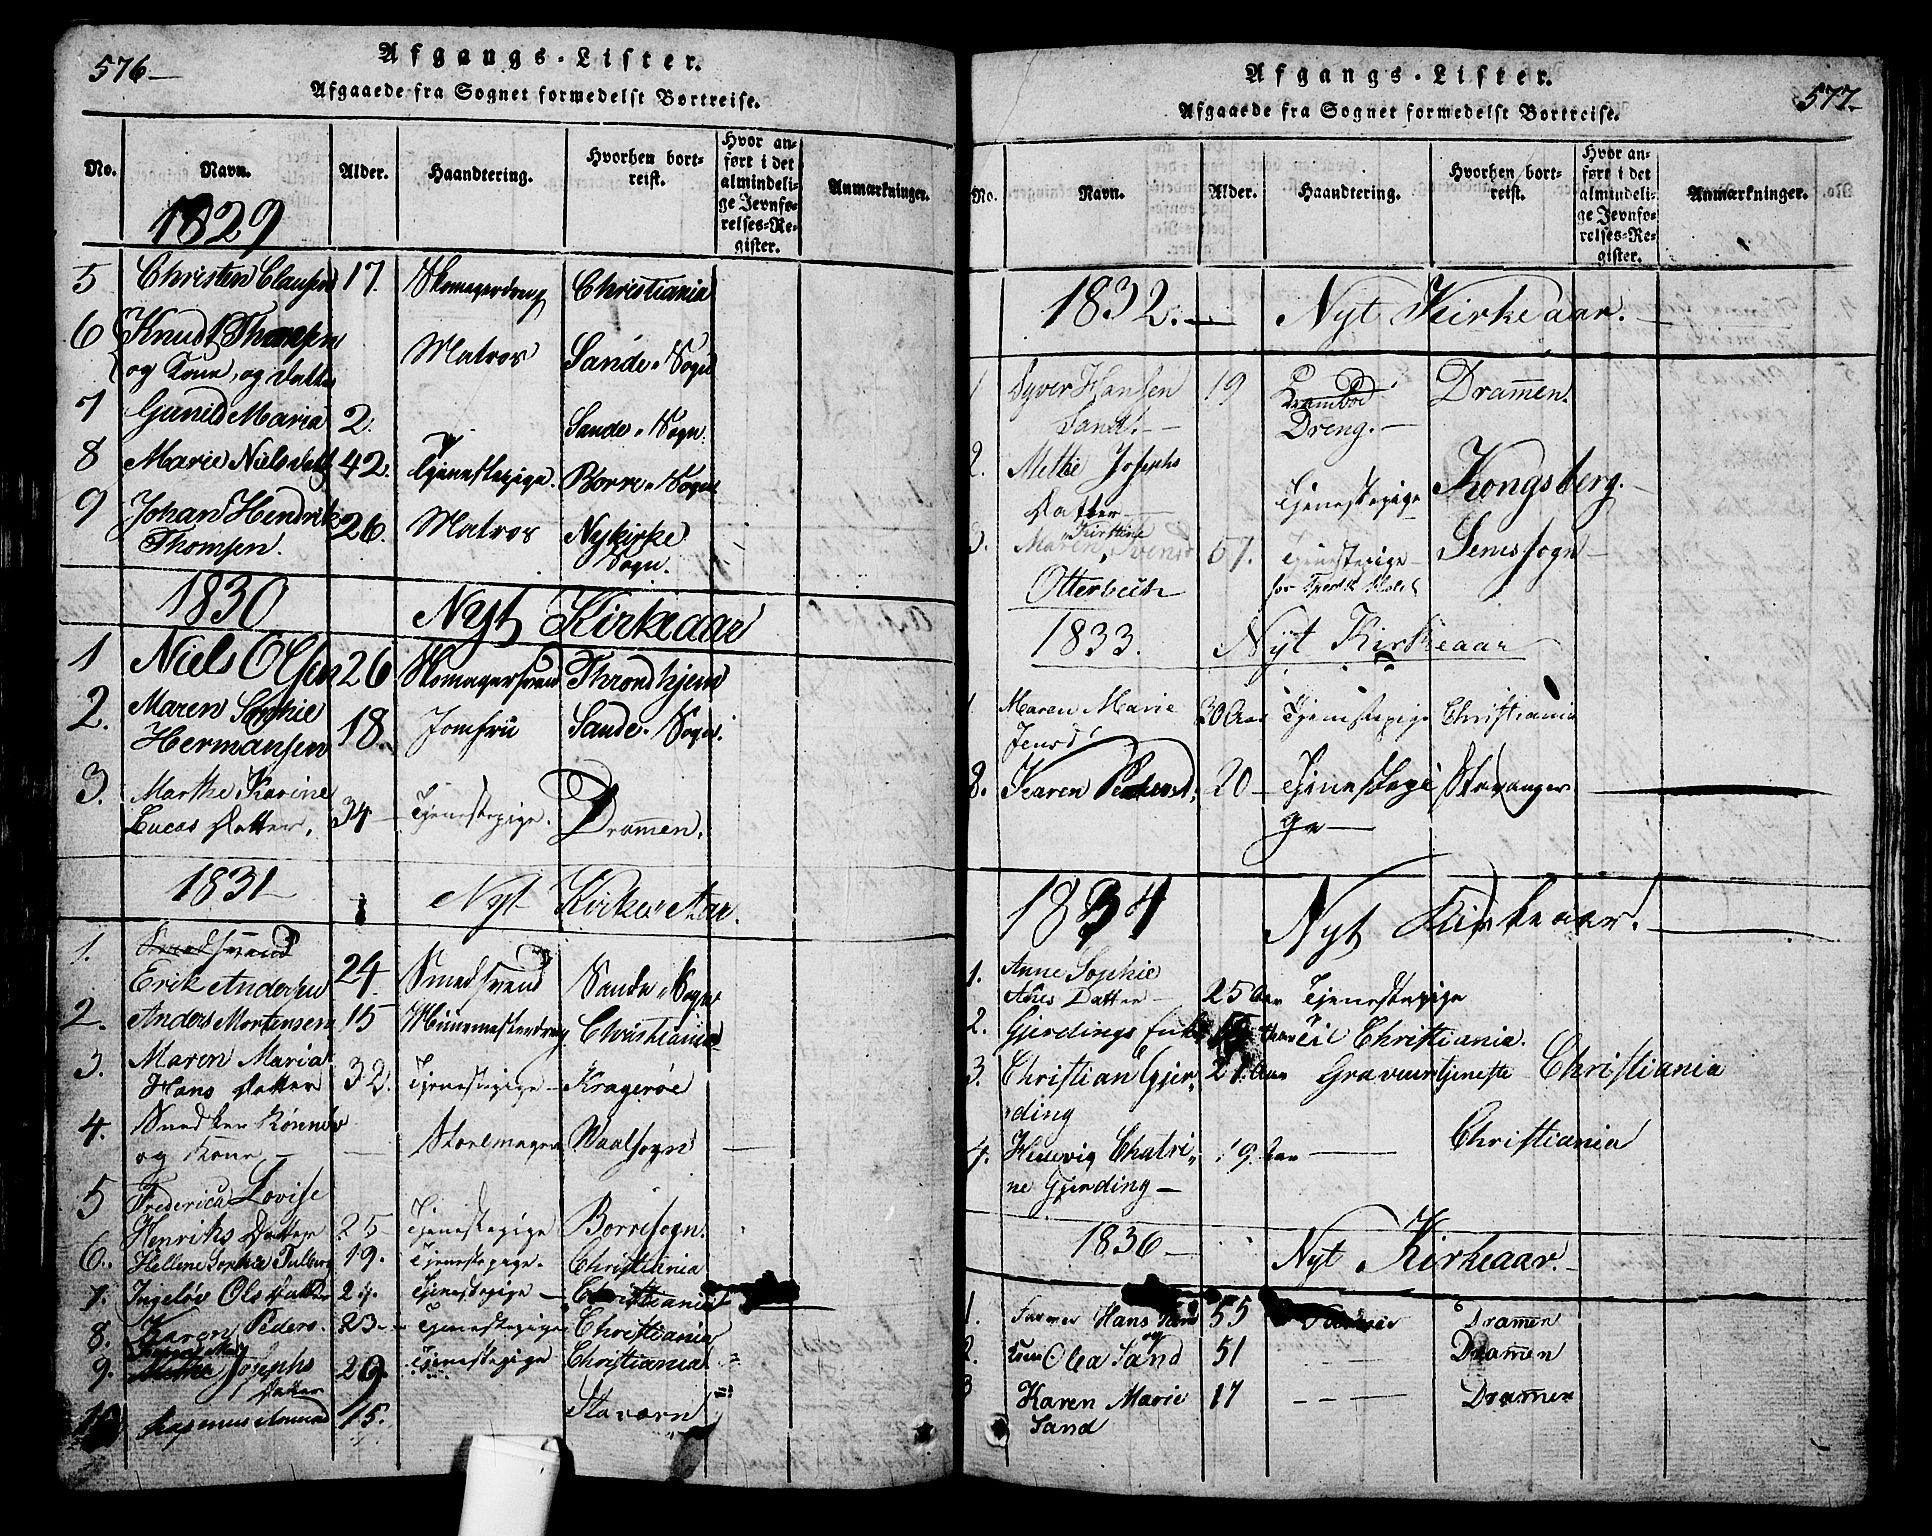 576
Afgangs-Lister.
Afgaaede fra Sognet formedelst Bortreise.
No. Navn. Alder. Haandtering. Hvorhen bortreist. Hvor anført i det almindelige Jevnførelses-Register. Anmærkninger.
1829
5 Christen Clausen 17. Skomagerdreng Christiania
6 Knudt Thomsen
og Kone, og datter Matros Sande Sogn
7 Gunild Maria 2. Sande Sogn.
8 Marie Niels datt 42. Tjenestepige. Borre Sogn
9 Johan Hendrik
Thomsen. 26. Matros Nykirke
Sogn.
1830 Nyt Kirkeaar
1 Niels Olsen 26 Skomagersvend Throndhjem
2. Maren Sophie
Hermansen 18. Jomfrü Sande Sogn.
3. Marthe Karine
Lucas datter, 34 Tjenestepige. Dramen.
1831 Nyt Kirke Aar.
1. Smedsvend
Erik Andersen 24. Smedsvend Sande Sogn
2. Anders Mortensen 15 Christiania
3. Maren Maria
Hans datter 32. Tjenestepige Kragerøe
4. Rønnov
og Kone Vaalsogn
5 Frederica Lovise
Henriks Datter 25 Tjenestepige Borresogn.
6. Hellene Sophie 19. Tjenestepige. Christiania
7. Ingebor Ols datter Tjenestepige Christiania
8. Karen Peders. 23 Tjenestepige Christiania
9. Josephs
datter Tjenestepige Christiania
10 Rasmus 15. Staværn
577
Afgangs-Lister.
Afgaaede fra Sognet formedelst Bortreise.
No. Navn. Alder. Haandtering. Hvorhen bortreist. Hvor anført i det almindelige Jevnførelses-Register. Anmærkninger.
1832. Nyt Kirkeaar.
1 Syver Hansen
Sand. 19 Krambod
Dreng. Dramen.
2. Methe Josephs
datter Tjenestepige Kongsberg.
3. Maren Kirstine Svends
Otterbech 57. Tjenestepige
for Semssogn
1833. Nyt Kirkeaar
1 Maren Marie
Jensd 30 Aar Tjenestepige Christiania
8. Karen Pedersd. 20 Tjenestepi
ge Stavanger
1834 Nyt Kirkeaar.
1. Anne Sophie
Datter 25 Aar Tjenestepige
2. Gjerdings Enke Aar til Christiania.
3. Christian Gjer
ding 21. Aar Gravørtjeneste Christiania
4. Hedevig Chatri
ne Gjerding 19 Aar Christiania
1836 Nyt Kirkeaar.
1. Farver Hans Sand 55 Farver Dramen
og
2. Kone Olea Sand 51 Dramen
3 Karen Marie
Sand 17 Dramen